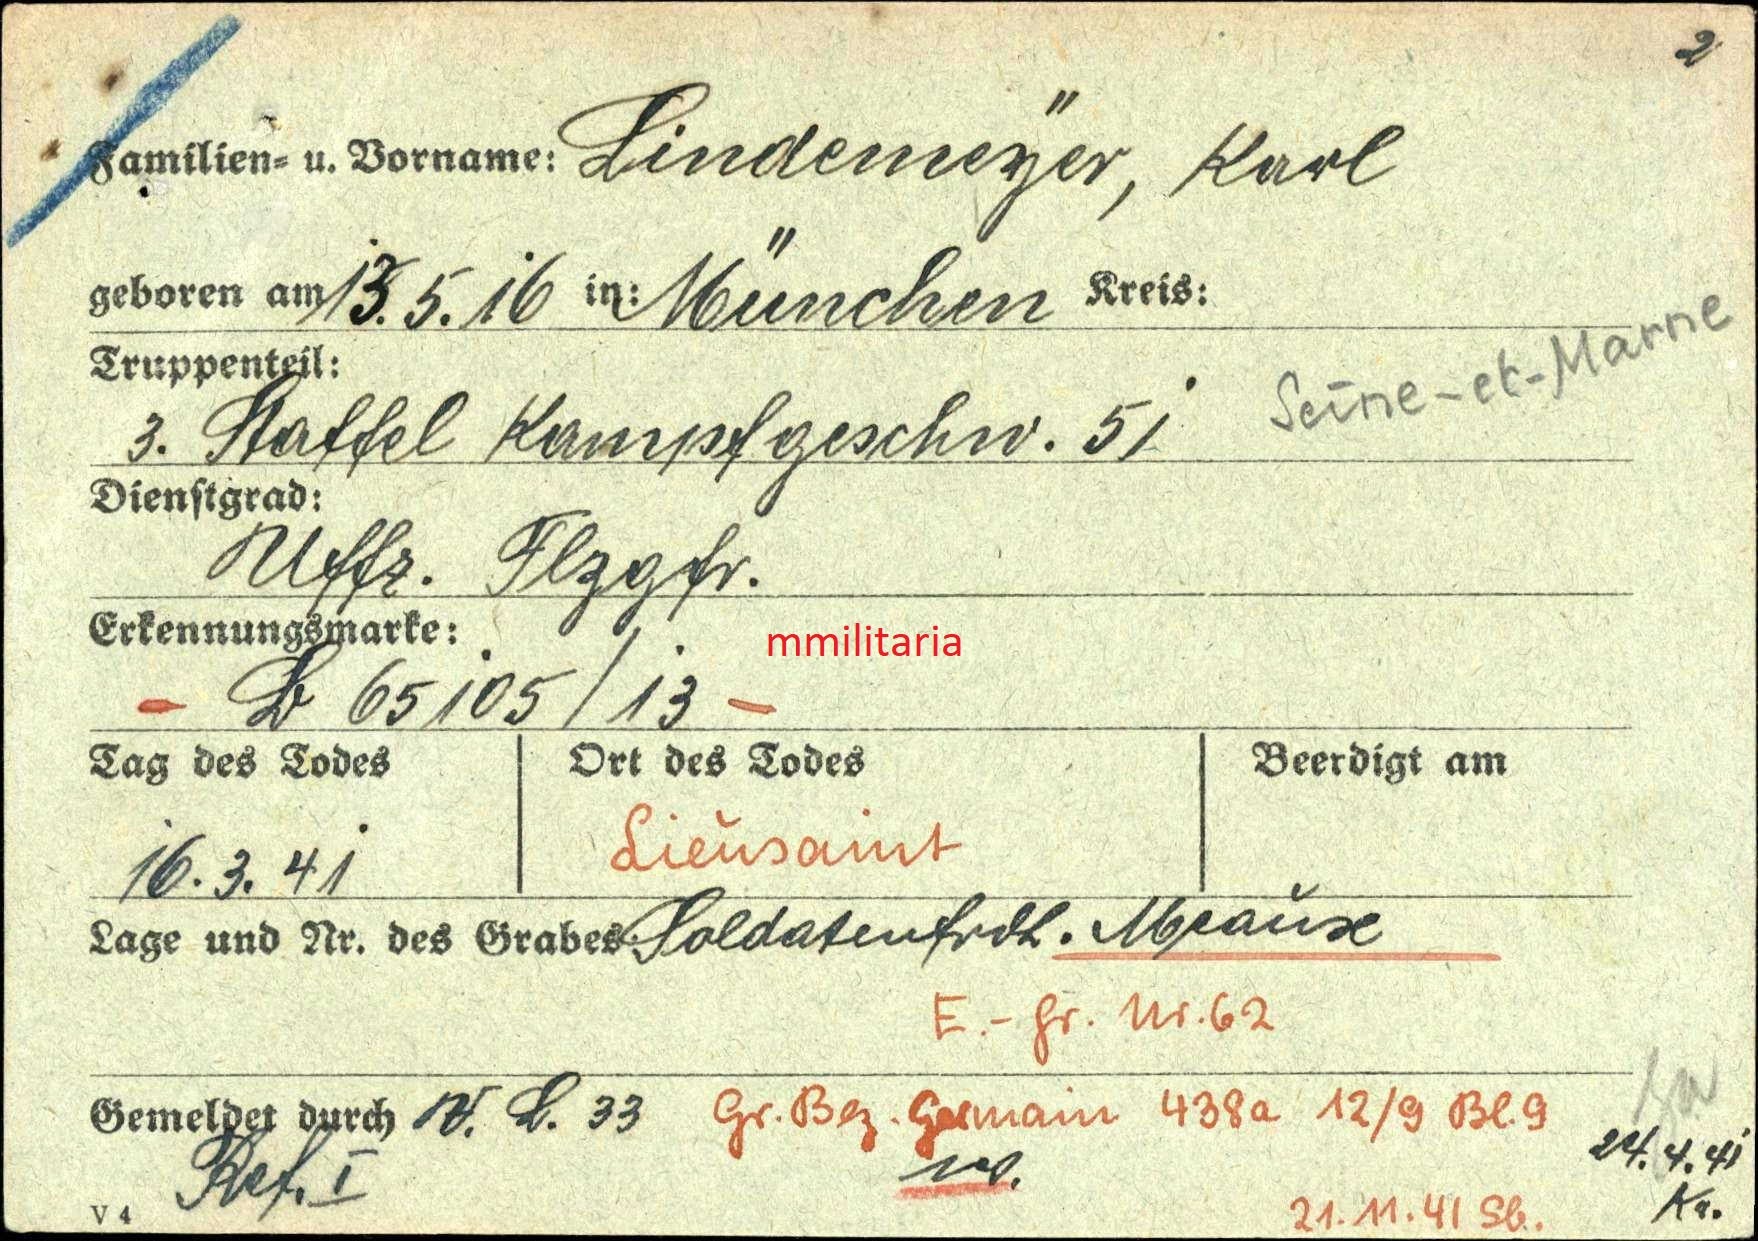 2
Familien- u. Vorname: Lindemeÿer, Karl
geboren am 13.5.16 in: München Kreis:
Truppenteil:
Seine-et-Marne
3. Staffel Kampfgeschw. 51
Dienstgrad:
Uffz. Flzgfr.
Erkennungsmarke:
mmilitaria
- B 65105/13 -
Tag des Todes Ort des Todes Beerdigt am
16.3.41 Lieusaint
Lage und Nr. des Grabes: Soldatenfrdh. Meaux
E.-Gr. Nr. 62
Gemeldet durch 33 Gr. Bez. Germain 438a 12/9 Bl. 9
24.4.41
Ref. I
Kr.
V 4
21.11.41 Sb.